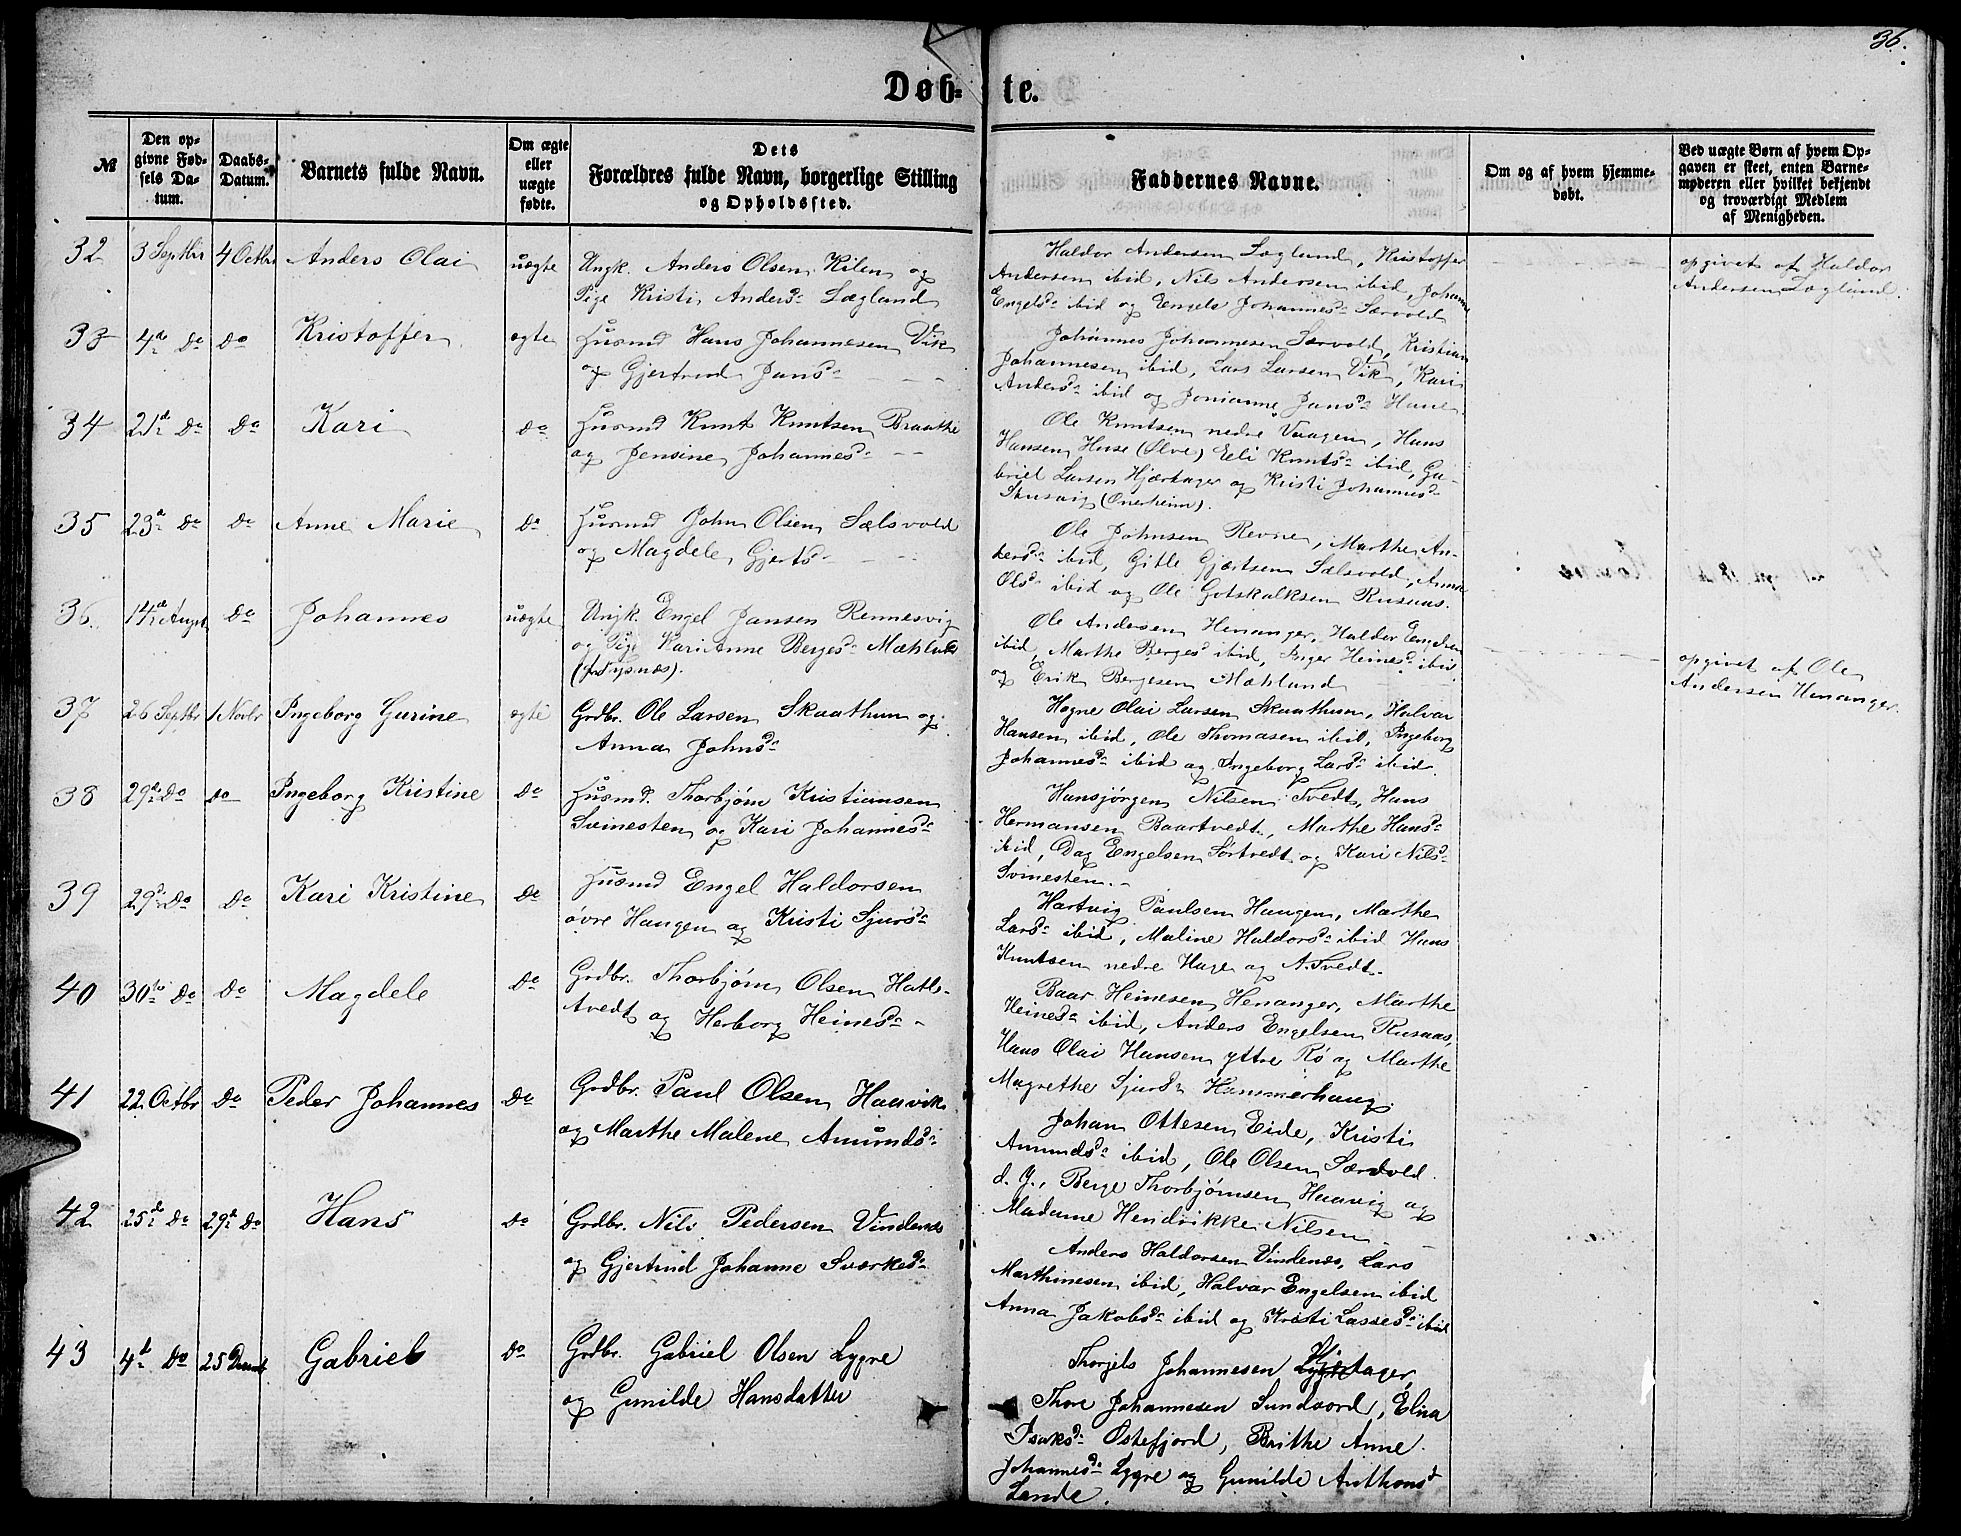 36.
Døb- te.
№
Den opgivne Fødsels Datum.
Daabs-Datum.
Barnets fulde Navn.
Om ægte eller uægte fødte.
Dets Forældres fulde Navn, borgerlige Stilling og Opholdssted.
Faddernes Navne.
Om og af hvem hjemmedøbt.
Ved uægte Børn af hvem Opgaven er skeet, enten Barnemoderen eller hvilket bekjendt og troværdigt Medlem af Menigheden.
32 3 Septbr 4 Octbr Anders Olai uægte Ungk. Anders Olsen Kilen og
Pige Kristi Andersd. Lægland
Haldor Andersen Lægland, Kristoffer
Andersen ibid, Nils Andersen ibid, Johanne
Engelsd. ibid og Engels Johannesd. Særvold
opgivet af Haldor
Andersen Lægland.
33 4de Do Do Kristoffer ægte Husmd Hans Johannesen Vik
og Gjertrud Jansd.
Johannes Johannesen Særvold, Kristian
Johannesen ibid, Lars Larsen Vik, Kari
Andersd. ibid og Jonianne Jansd. Hane
34 21d Do Do Kari Do Husmd Knut Knutsen Braathe
og Jensine Johannesd.
Ole Knutsen nedre Vaagen, Hans
Hansen Huse (Ølve) Eli Knutsd. ibid, Ga-
briel Larsen Hjærtager og Kristi Johannesd.
(Onerheim).
35 23d Do Do Anne Marie Do Husmd John Olsen Sælsvold
og Magdele Gjertsd.
Ole Johnsen Revne, Marthe An-
dersd. ibid, Gitle Gjærtsen Sælsvold, Anna
Olsd. ibid og Ole Gotskalksen Rusaas.
36. 14d August Do Johannes uægte Ungk. Engel Jansen Rennesvig
og Pige Kari Anne Bergesd. Mæhlund
(fr Tysnæs).
Ole Andersen Henanger, Haldor Engelsen
ibid, Marthe Bergesd. ibid, Inger Heinesd. ibid
og Erik Bergesen Mæhlund
opgivet af Ole
Andersen Henanger.
37 26 Septbr 1 Novbr Ingeborg Gurine ægte Grdbr. Ole Larsen Skaathun og
Anna Johnsd.
Hogne Olai Larsen Skaathun, Halvor
Hansen ibid, Ole Thomasen ibid, Ingeborg
Johannesd. ibid og Ingeborg Larsd. ibid.
38 29d Do Do Ingeborg Kristine Do Husmd. Thorbjørn Kristiansen
Svinesten og Kari Johannesd.
Hansjørgen Nilsen Tvedt, Hans
Hermansen Baartvedt, Marthe Hansd.
ibid, Dag Engelsen Sørtvedt og Kari Nilsd.
Svinesten.
39 29d. Do Do Kari Kristine Do Husmd Engel Haldorsen
øvre Haugen og Kristi Sjursd.
Hartvig Paulsen Haugen, Marthe
Larsd. ibid, Maline Haldorsd. ibid Hans
Knutsen nedre Hage og A. Tvedt.
40 30te Do Do Magdele Do Grdbr. Thorbjørn Olsen Hatle-
tvedt og Herborg Heinesd.
Baar Heinesen Henanger, Marthe
Heinesd. ibid, Anders Engelsen Rusaas,
Hans Olai Hansen yttre Rø og Marthe
Magrethe Sjursd. Hammerhaug.
41 22 Octbr Do Peder Johannes Do Grdbr. Paul Olsen Haavik
og Marthe Malene Amundsd.
Johan Ottesen Eide, Kristi
Amundsd. ibid, Ole Olsen Særvold
d. Y., Berge Thorbjørnsen Haavig og
Madame Hendrikke Nilsen
42 25de Do 29d Do Hans Do Grdbr. Nils Pedersen Vindenes
og Gjertrud Johanne Sværkesd.
Anders Haldorsen Vindenes, Lars
Marthinesen ibid, Halvar Engelsen ibid
Anna Jakobsd. ibid og Kristi Lassesd. ibid
43 4d Do 25 Decembr Gabriel Do Grdbr. Gabriel Olsen Lygre
og Gunilde Hansdatter
Thorjels Johannesen Hjertager,
Thore Johannesen Sundvord, Elina
Isaksd. Østefjord, Brithe Anne
Johannesd. Lygre og Gunilde Anthonsd
Lande.